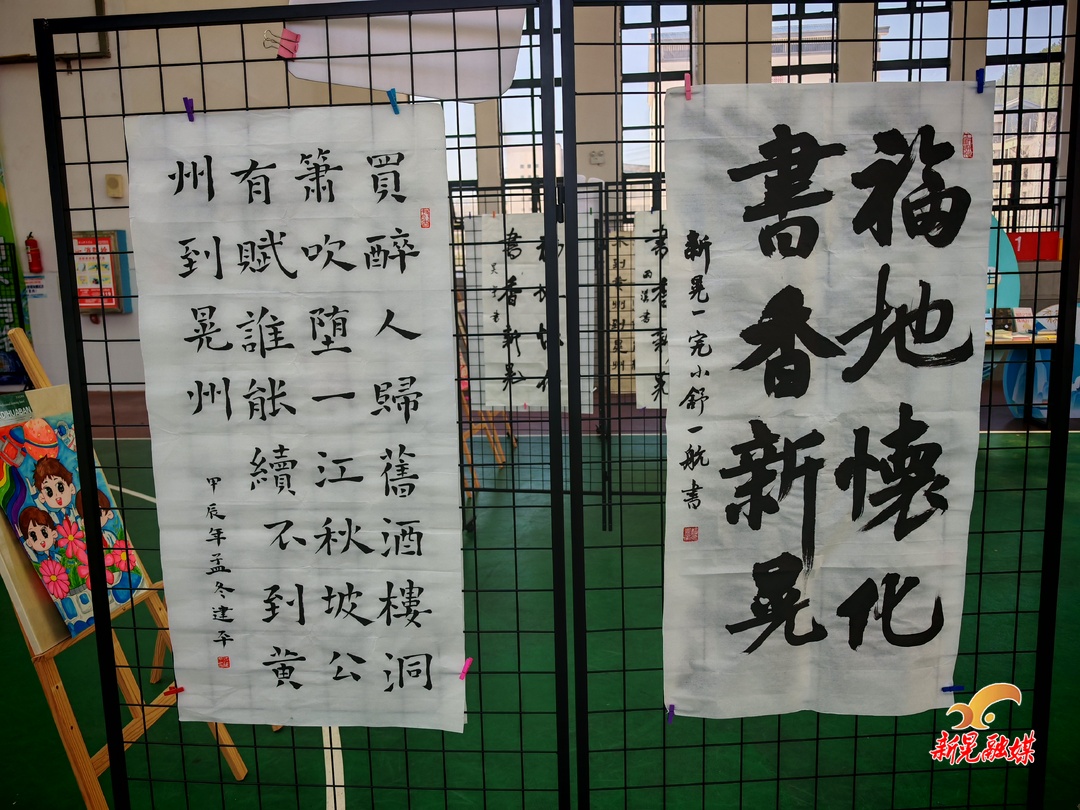 買醉人歸舊酒樓洞
簫吹堕一江秋坡公
有賦誰能續不到黄
州到晃州
甲辰年孟冬建平
福地懷化
書香新晃
新晃一完小舒一航書
書香新晃
1
新晃融媒